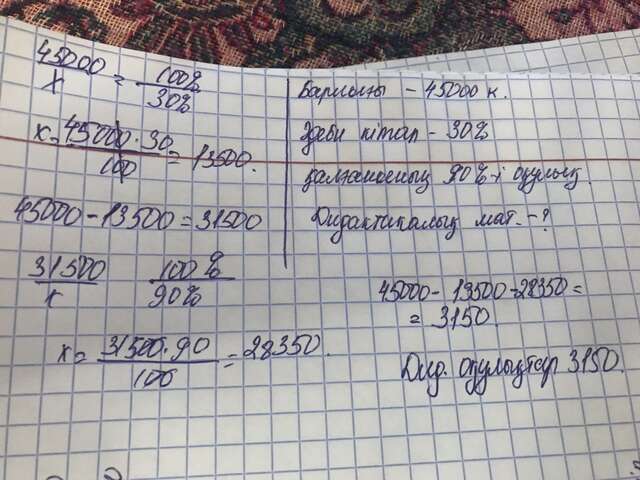 45000/x = 100%/30%
x = 45000·30/100 = 13500.
45000-13500=31500
31500/x 100%/90%
x = 31500·90/100 = 28350.
Барлығы - 45000 к.
Әдеби кітап - 30%
қалғанының 90%-і оқулық.
Дидактикалық мат. - ?
45000 - 13500 - 28350 =
= 3150.
Дид. оқулықтар 3150.